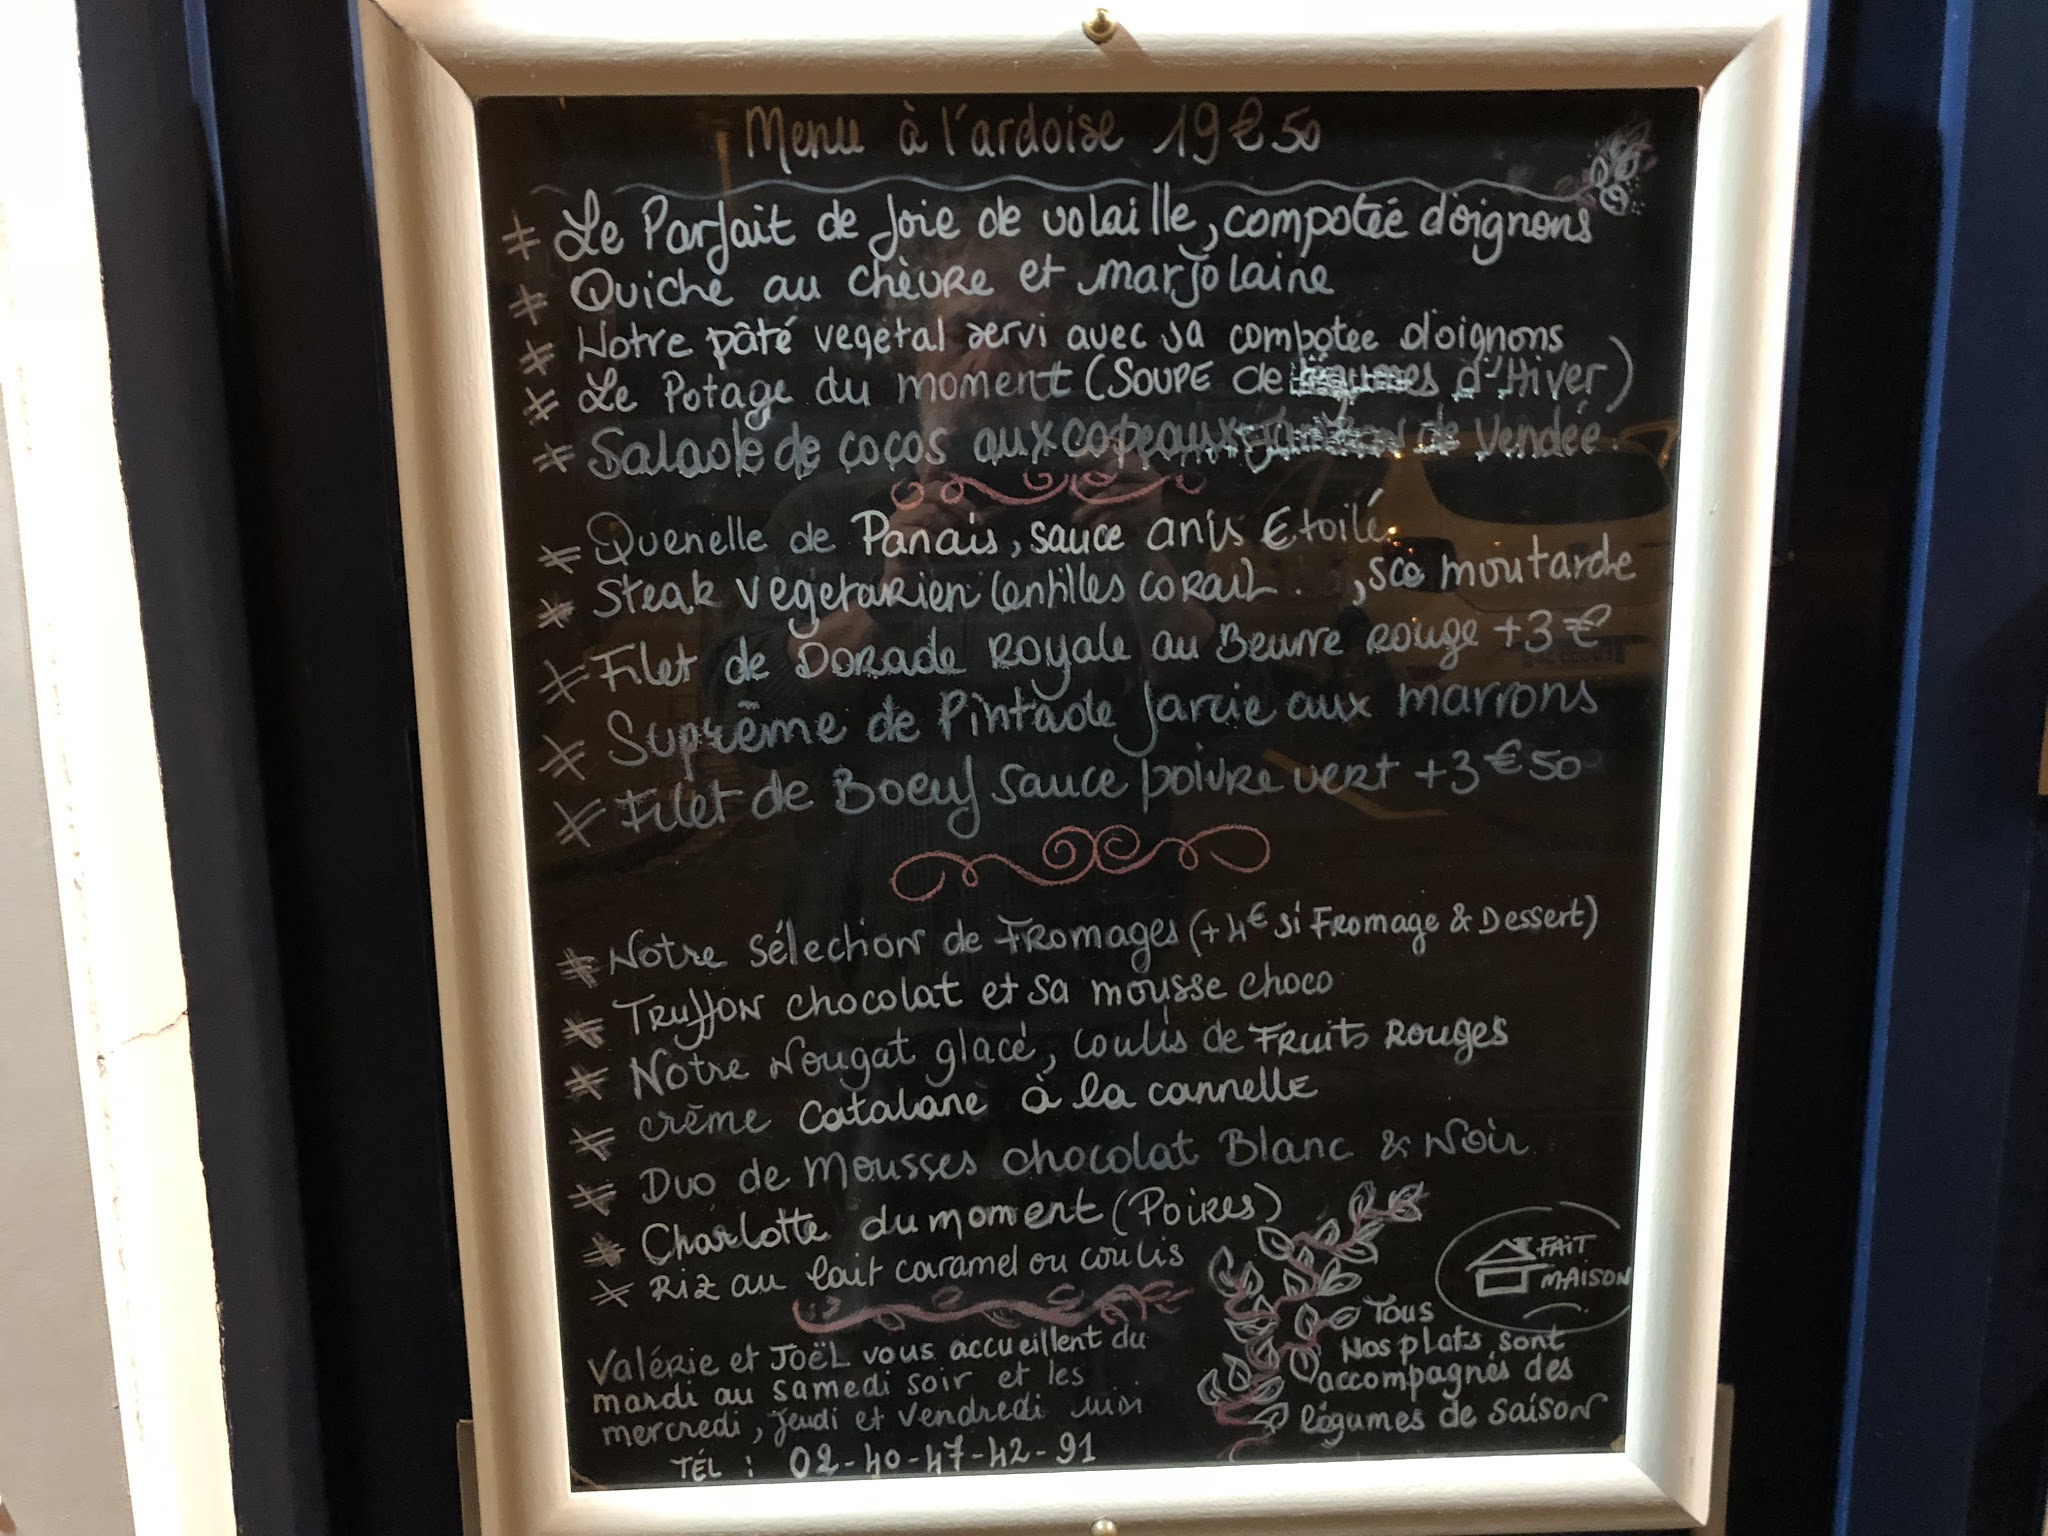 Menu à l'ardoise 19€50
* Le Parfait de foie de volaille, compotée d'oignons
* Quiche au chèvre et marjolaine
* Notre pâté vegetal servi avec sa compotée d'oignons
* Le Potage du moment (Soupe de légumes d'Hiver)
* Salade de cocos aux copeaux jambon de Vendée.
* Quenelle de Panais, sauce anis Etoilé
* Steak vegetarien lentilles corail , sce moutarde
* Filet de Dorade Royale au Beurre Rouge +3€
* Suprême de Pintade farcie aux marrons
* Filet de Boeuf sauce poivre vert +3€50
* Notre sélection de Fromages (+4€ si Fromage & Dessert)
* Truffon chocolat et sa mousse choco
* Notre Nougat glacé, coulis de Fruits Rouges
* crème Catalane à la cannelle
* Duo de Mousses chocolat Blanc & Noir
* Charlotte du moment (Poires)
* Riz au lait caramel ou coulis
FAIT
MAISON
Valérie et Joël vous accueillent du
mardi au samedi soir et les
mercredi, jeudi et vendredi midi
TÉL : 02-40-47-42-91
Tous
Nos plats sont
accompagnés des
légumes de saison